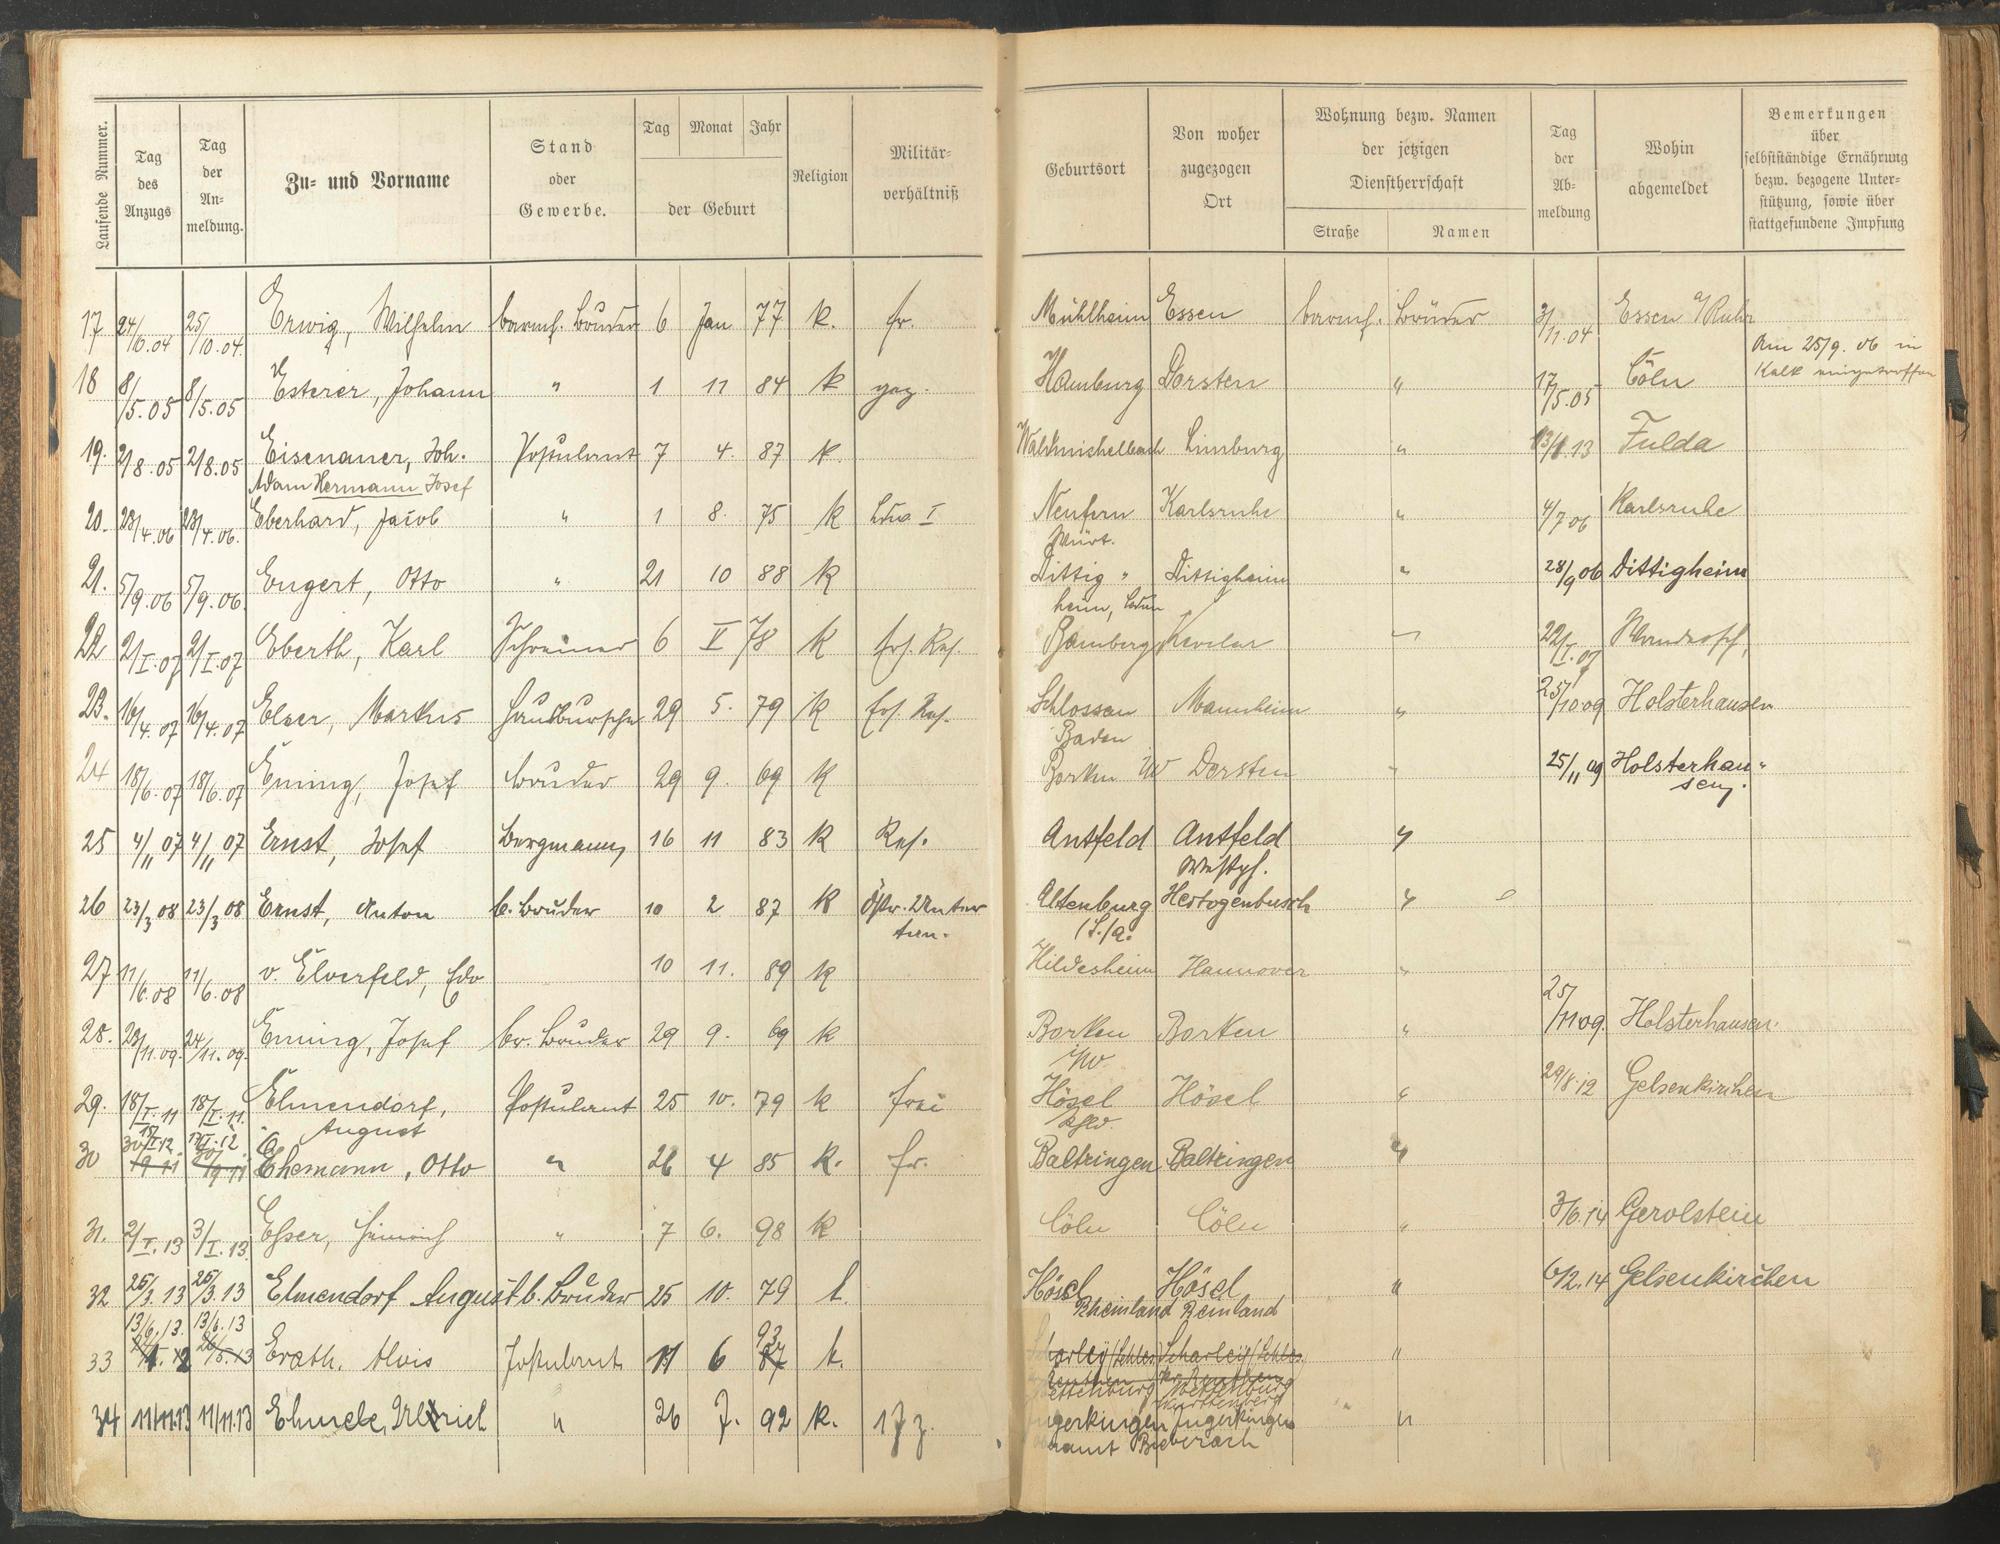 Laufende Nummer. Tag des Anzugs Tag der An-meldung. Zu- und Vorname Stand oder Gewerbe. Tag Monat Jahr der Geburt Religion Militär-verhältniß Geburtsort Von woher zugezogen Ort Wohnung bezw. Namen der jetzigen Dienstherrschaft Straße Namen Tag der Ab-meldung Wohin abgemeldet Bemerkungen über selbstständige Ernährung bezw. bezogene Unter-stützung, sowie über stattgefundene Impfung
17 24/6.04 25/10.04. Erwig, Wilhelm barmh. Bruder 6 Jan 77 k. fr. Mühlheim Essen barmh. Brüder 3/11.04 Essen a/Ruhr
18 8/5.05 8/5.05 Esterer, Johann " 1 11 84 k Hamburg Dorsten " 17/5.05 Cöln Am 25/9. 06 in Kalk eingetroffen
19. 2/8.05 2/8.05 Eisenauer, Joh. Postulant 7 4. 87 k. Limburg " 13/1.13 Fulda
Adam Hermann Josef
20. 23/4.06 23/4.06. Eberhard, Jacob " 1 8. 75 k Ldw. I Neufern Karlsruhe " 4/7 06 Karlsruhe
Würt.
21. 5/9.06 5/9.06. Engert, Otto " 21 10 88 k Dittig " Dittigheim " 28/9 06 Dittigheim
heim, Baden
22 21/I.07 21/I.07 Eberth, Karl Schreiner 6 V 78 k Ers. Res. Bamberg Kevelar " 22/I.07
23. 16/4.07 16/4.07 Elser, Markus Hausbursche 29 5. 79 k Ers. Res. Schlossau Mannheim " 25/10 09 Holsterhausen
Baden
24 18/6.07 18/6.07 Eming, Josef Bruder 29 9. 69 k Borken i/W Dorsten " 25/11 09 Holsterhau-
sen.
25 4/11 07 4/11 07 Ernst, Josef Bergmann 16 11 83 k Res. Antfeld Antfeld "
Westph.
26 23/3 08 23/3 08 Ernst, Anton b. Bruder 10 2 87 k Östr. Unter Altenburg Hertogenbusch "
tan. S./a.
27 11/6.08 11/6.08 v. Elverfeld, Edv 10 11. 89 k Hildesheim Hannover "
28. 23/11.09. 24/11.09. Eming, Josef br. Bruder 29 9. 69 k Borken Borken " 25/11 09. Holsterhausen.
i/W.
29. 18/I.11 18/I.11. Elmendorf, Postulant 25 10. 79 k frei Hösel Hösel " 29/8.12 Gelsenkirchen
August Rhld.
30 Ehemann, Otto " 26 4 85 k. fr. Baltringen Baltringen "
31. 2/I.13 3/I.13. Esser, Heinrich " 7 6. 98 k Cöln Cöln " 3/6.14 Gerolstein
32 26/3.13 26/3.13 Elmendorf August b. Bruder 25 10. 79 k. Hösel Hösel " 6/2.14 Gelsenkirchen
Rheinland Reinland
13/6.13. 13/6.13 93
33 26/5.13 Erath. Alois Postulant 11 6 87 k. Scharley/Schles. Scharley/Schles. "
Beuthen Kr. Beuthen
Württemberg
34 11/11.13 11/11.13 Ehmele, Ulrich " 26 7. 92 k. Ingerkingen Ingerkingen "
Biberach